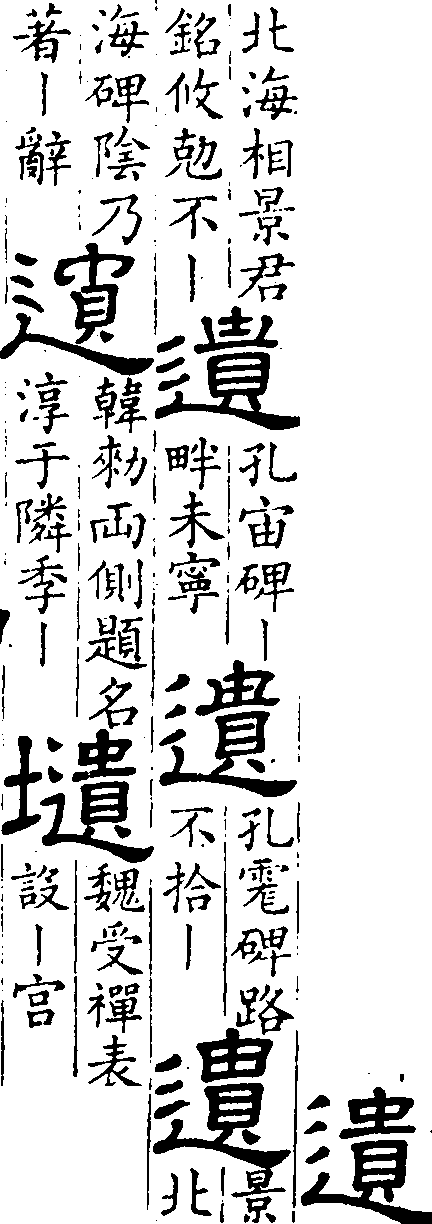 遺
北海相景君
銘攸勊不丨
遺
孔宙碑丨
畔未寧
遺
孔彪碑路
不拾丨
遺
景
北
海碑陰乃
著丨辭
遺
韓勑兩側題名
淳于隣季丨
壝
魏受禪表
設丨宮